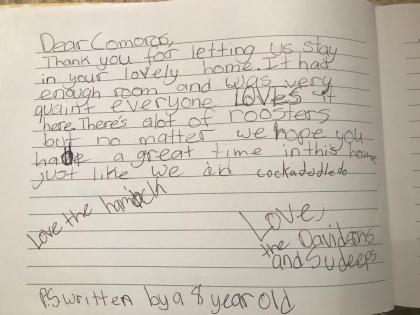 Dear Comoros,
Thank you for letting us stay
in your lovely home. It had
enough room and was very
quaint everyone LOVES it
here. There's alot of roosters
but no matter we hope you
have a great time in this home
just like we did cockadoodledo
Love the
Love,
the Davidsons
and Sudeeps
PS written by a 8 year old